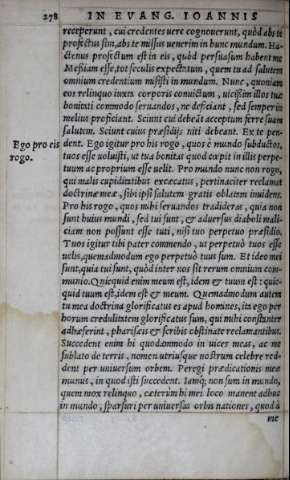 278 IN EVANG. IOANNIS
receperunt, cui credentes uere cognouerunt, quòd abs te
profectus sim, abs te missus uenerim in hunc mundum. Ha-
ctenus profectum est in eis, quòd persuasum habent me
Messiam esse, tot seculis expectatum, quem tu ad salutem
omnium credentium misisti in mundum. Nunc, quoniam
eos relinquo iuxta corporis conuictum, uicissim illos tuæ
bonitati commodo seruandos, ne deficiant, sed semper in
melius proficiant. Sciunt cui debeãt acceptum ferre suam
salutem. Sciunt cuius præsidijs niti debeant. Ex te pen-
Ego pro eis
rogo.
dent. Ego igitur pro his rogo, quos è mundo subductos,
tuos esse uoluisti, ut tua bonitas quod cœpit in illis perpe-
tuum ac proprium esse uelit. Pro mundo nunc non rogo,
qui malis cupiditatibus excæcatus, pertinaciter reclamat
doctrinæ meæ, sibi ipsi salutem gratis oblatam inuidens.
Pro his rogo, quos mihi seruandos tradideras, quia non
sunt huius mundi, sed tui sunt, & aduersus diaboli mali-
ciam non possunt esse tuti, nisi tuo perpetuo præsidio.
Tuos igitur tibi pater commendo, ut perpetuò tuos esse
uelis, quemadmodum ego perpetuò tuus sum. Et ideo mei
sunt, quia tui sunt, quòd inter nos sit rerum omnium com-
munio. Quicquid enim meum est, idem & tuum est: quic-
quid tuum est, idem est & meum. Quemadmodum autem
tu mea doctrina glorificatus es apud homines, ita ego per
horum credulitatem glorificatus sum, qui mihi constanter
adhæserint, phariseis & scribis obstinate reclamantibus.
Succedent enim hi quodammodo in uices meas, ac me
sublato de terris, nomen utriusque nostrum celebre red-
dent per uniuersum orbem. Peregi prædicationis meæ
munus, in quod isti succedent. Iamq; non sum in mundo,
quem mox relinquo, cæterùm hi mei loco manent adhuc
in mundo, sparsuri per uniuersas orbis nationes, quod à
me